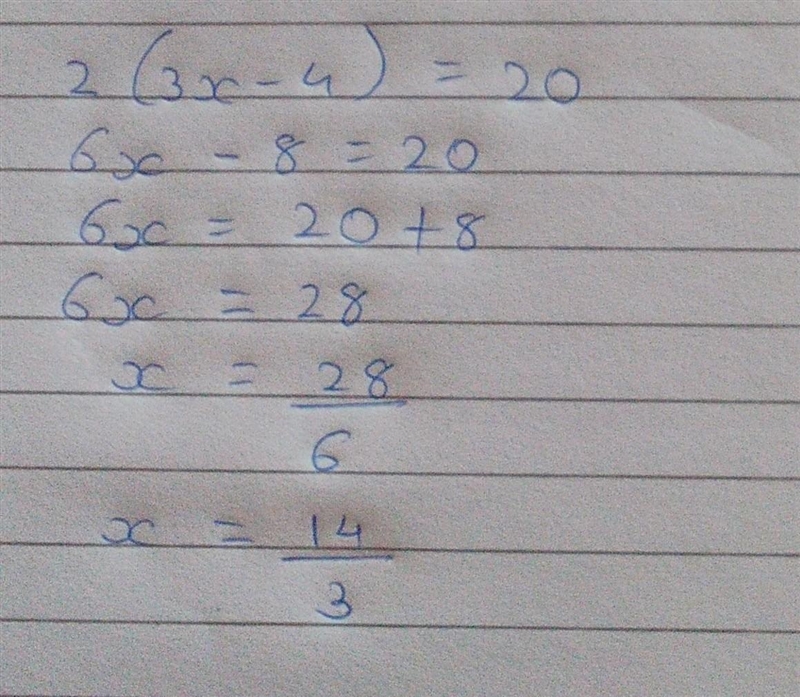 2 (3x - 4) = 20
6x - 8 = 20
6x = 20 + 8
6x = 28
x = 28
6
x = 14
3